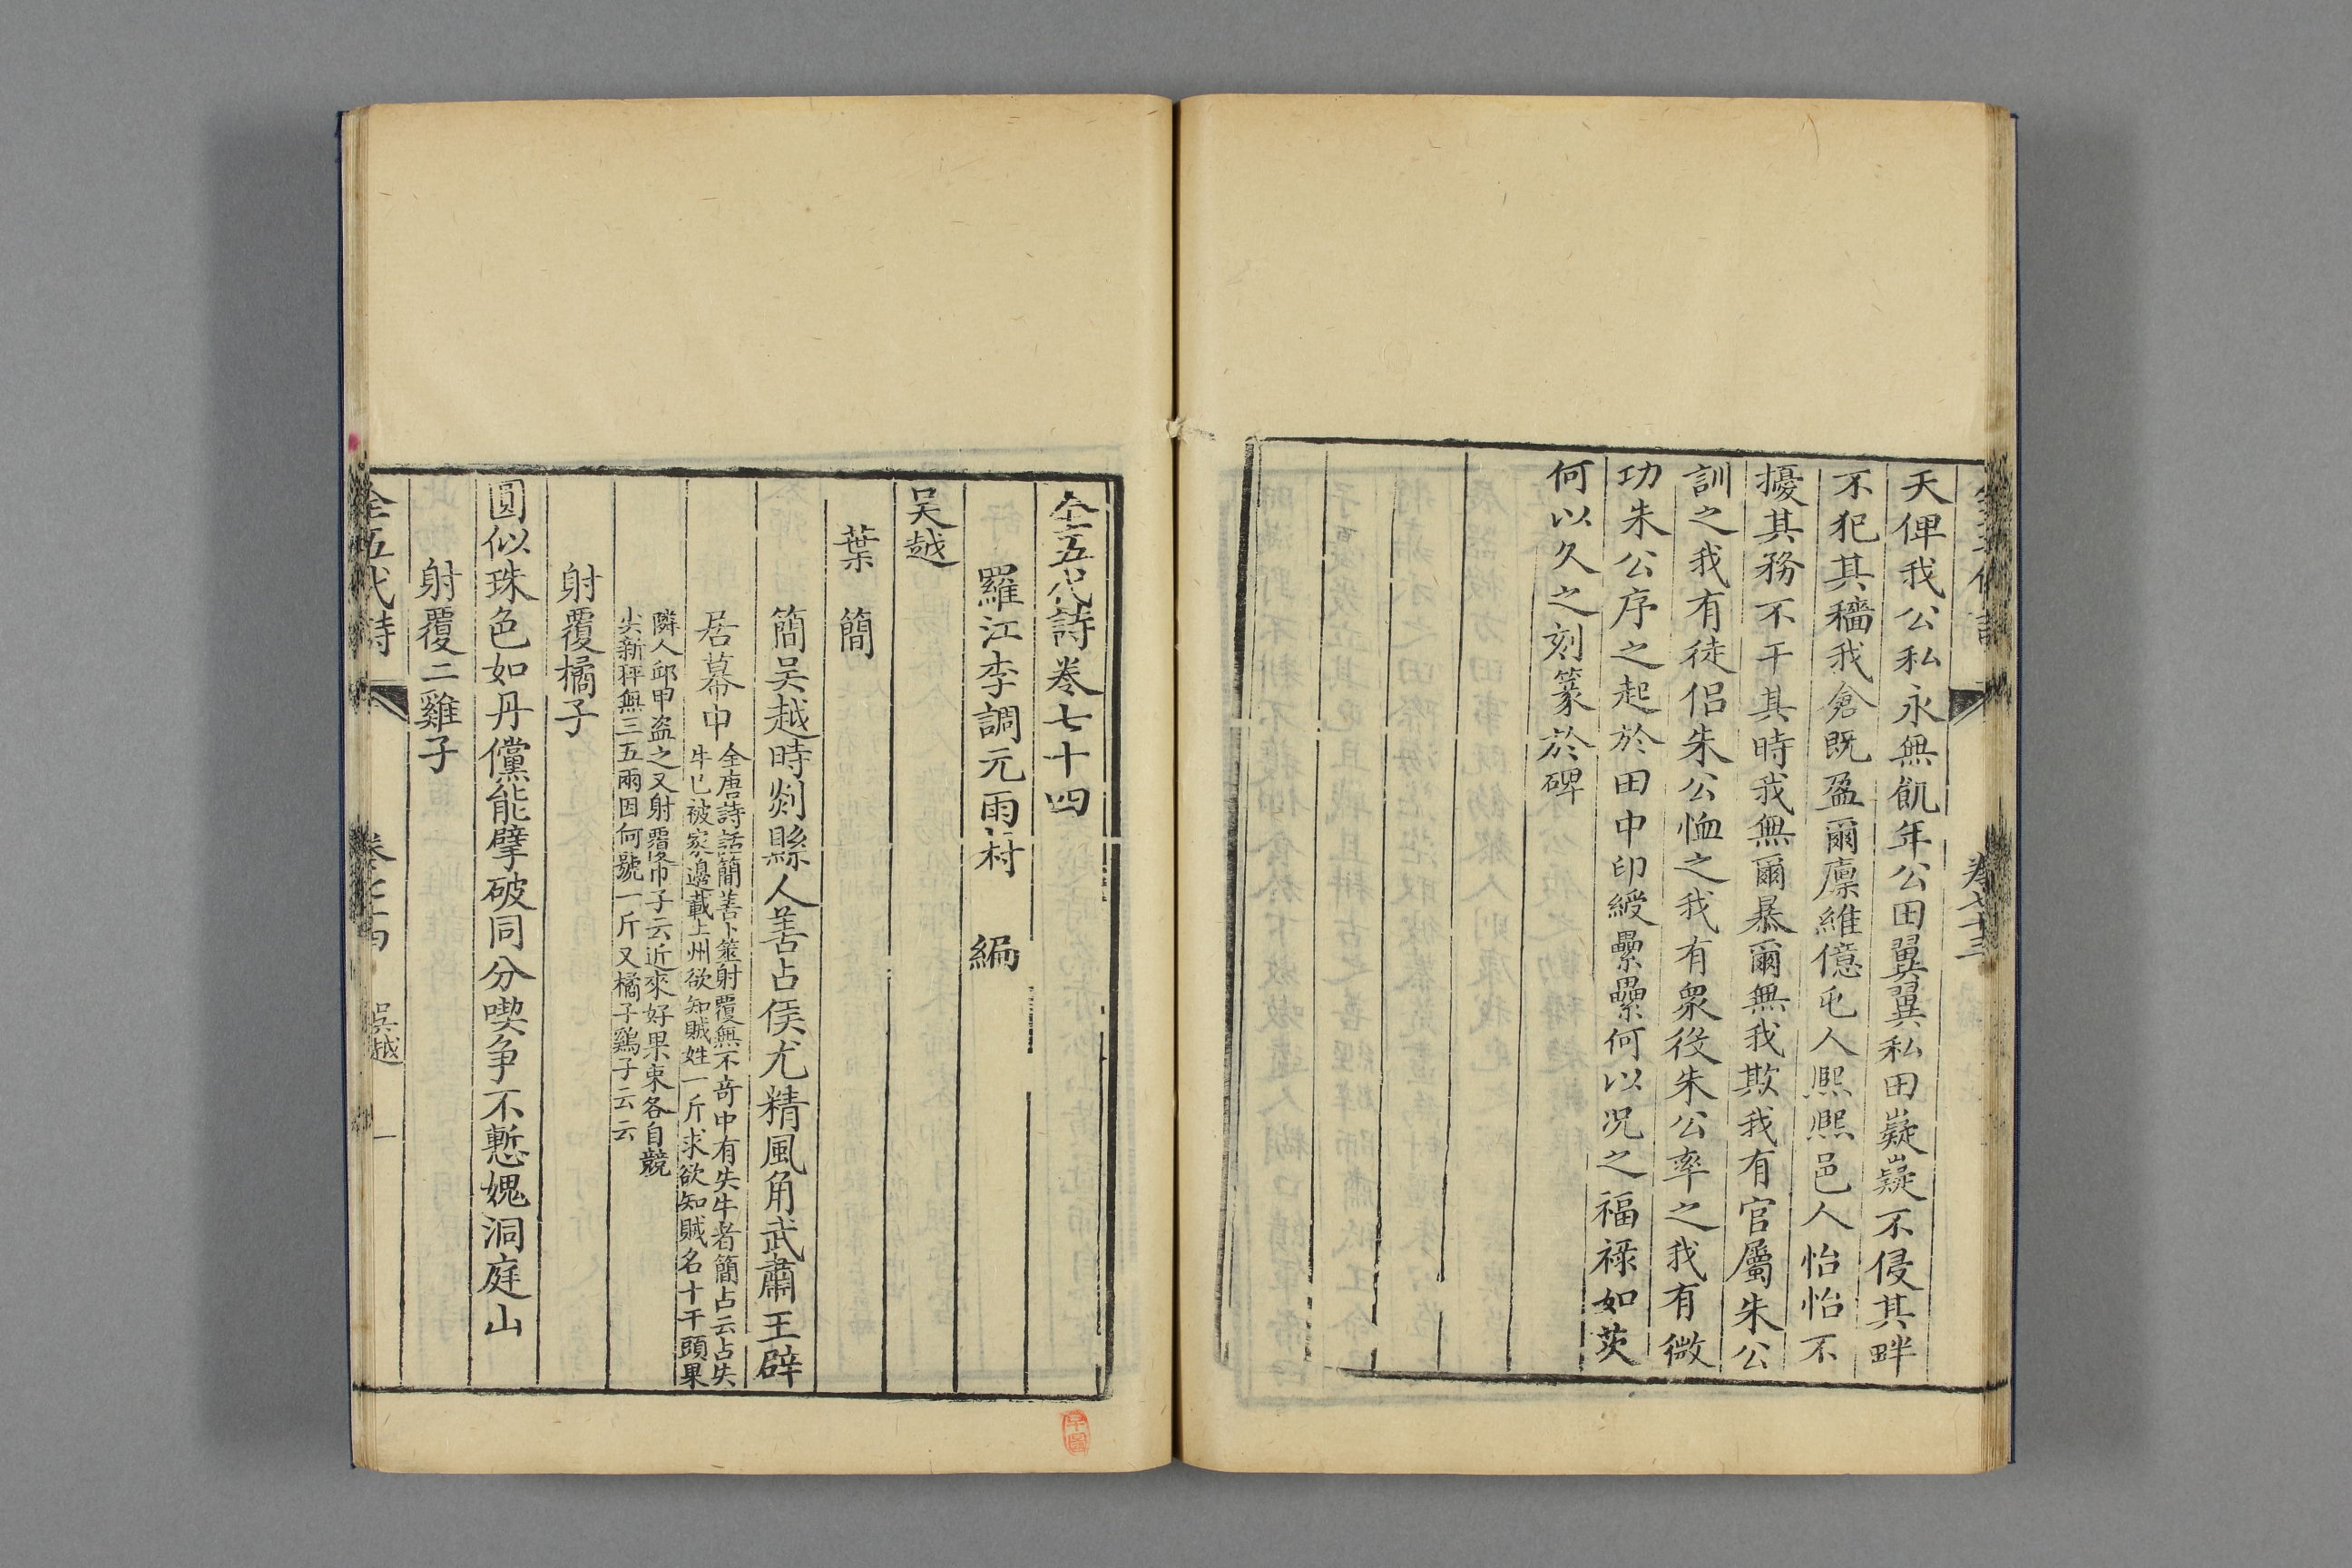 天俾我公私永無飢年公田翼翼私田嶷嶷不侵其畔
不犯其穡我倉既盈爾廩維億屯人熙熙邑人怡怡不
擾其務不干其時我無爾暴爾無我欺我有官屬朱公
訓之我有徒侶朱公恤之我有眾役朱公率之我有微
功朱公序之起於田中印綬纍纍何以況之福祿如茨
何以久之刻篆於碑
卷七十三
全五代詩卷七十四
羅江李調元雨村 編
吳越
葉簡
簡吳越時剡縣人善占侯尤精風角武肅王辟
居幕中
全唐詩話簡善卜筮射覆無不奇中有失牛者簡占云占失
牛已被家邊載上州欲知賊姓一斤求欲知賊名十干頭果
隣人邱甲盗之又射覆絳巾子云近來好果束各自競
尖新秤無三五兩因何號一斤又橘子鷄子云云
射覆橘子
圓似珠色如丹儻能擘破同分喫争不慙媿洞庭山
射覆二雞子
全五代詩
卷七十四
吳越
一